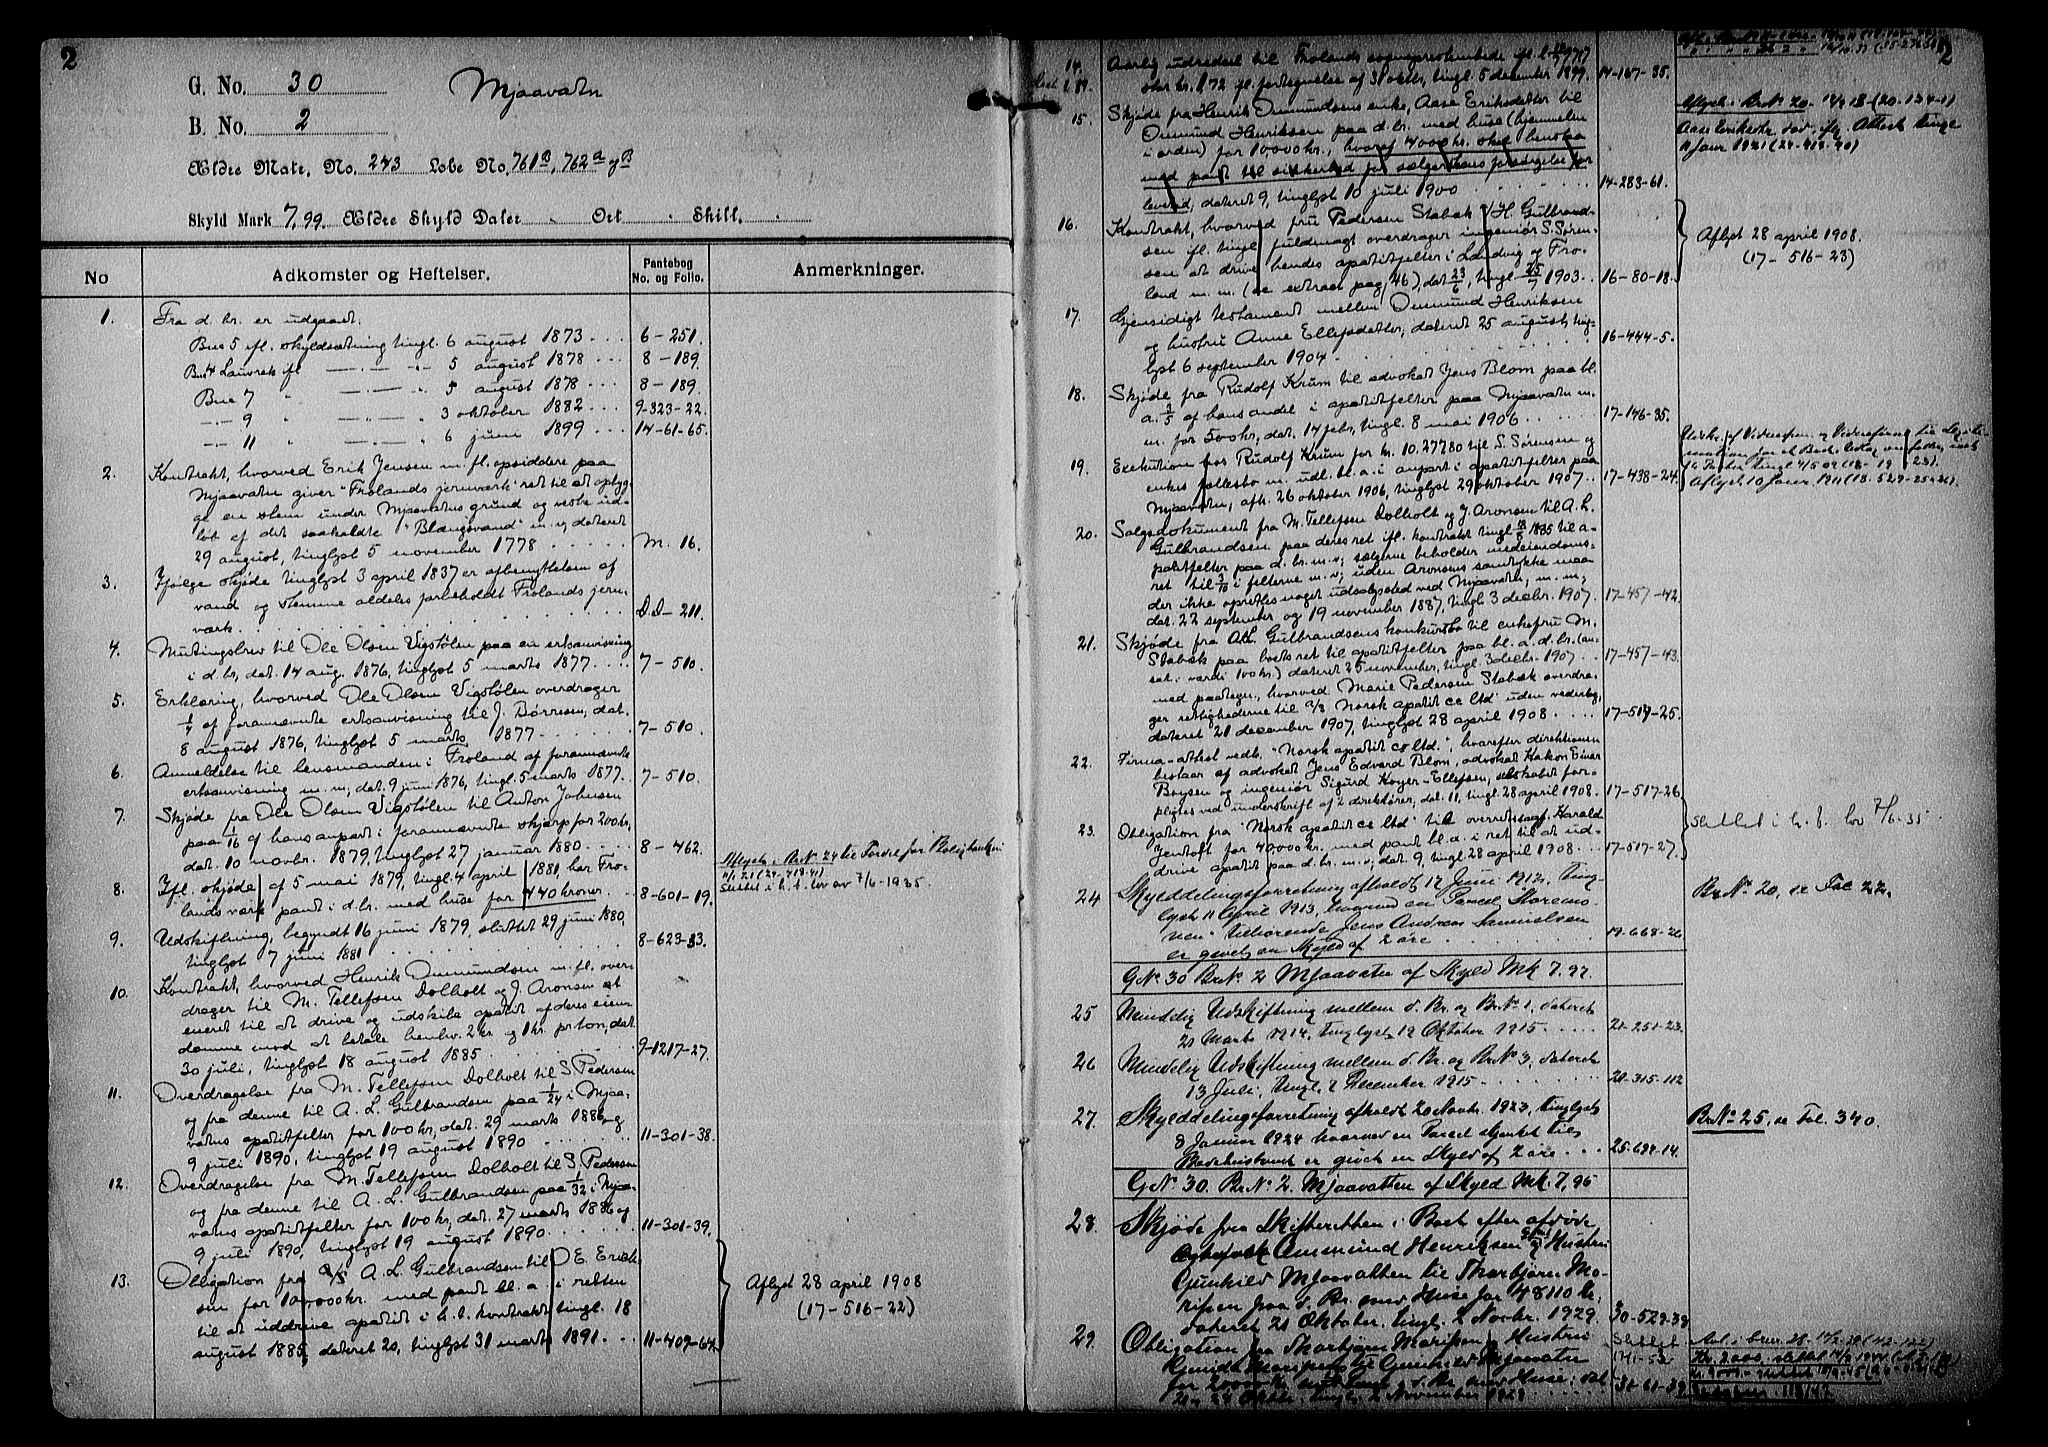 2
G. No. 30 Mjaavatn
B. No. 2
Ældre Matr. No. 243 Løbe No. 761B, 762a og B
Skyld Mark 7,99 Ældre Skyld Daler Ort Skill.
No Adkomster og Heftelser. Pantebog No. og Folio. Anmerkninger.
1. Fra d. br. er udgaaet.
Bno 5 ifl. skyldsætning tingl. 6 august 1873 6-251.
Bno 4 Lauvrak ifl — " — 5 august 1878 8-189.
Bno 7 " — " — 5 august 1878 8-189.
—"— 9 " — " — 3 oktober 1882 9-323-22.
—"— 11 " — " — 6 juni 1899 14-61-65.
2. Kontrakt, hvorved Erik Jensen m. fl. opsiddere paa
Mjaavatn giver "Frolands jernværk" ret til at opbyg-
ge en stem under Mjaavatns grund og ud-
løb af det saakaldte "Blængsvand" m. v, dateret
29 august, tinglyst 5 november 1778 M. 16.
3. Ifølge skjøde tinglyst 3 april 1837 er afbenyttelsen af
vand og stemme aldeles forbeholdt Frolands jern-
værk. D.D-211.
4. Mutingsbrev til Ole Olsen Vigstølen paa en ertsanvisning
i d. br, dat. 14 aug. 1876, tinglyst 5 marts 1877 7-510.
5. Erklæring, hvorved Ole Olsen Vigstølen overdrager
1/4 af forannævnte ertsanvisning til J. Børresen, dat.
8 august 1876, tinglyst 5 marts 1877 7-510.
6. Anmeldelse til lensmanden i Froland af forannævnte
ertsanvisning m. m, dat. 9 juni 1876, tingl. 5 marts 1877. 7-510.
7. Skjøde fra Ole Olsen Vigstølen til Anton Johnsen
paa 1/16 af hans anpart i forannævnte skjærp for 200 kr,
dat. 10 novbr. 1879, tinglyst 27 januar 1880 8-462.
8. Ifl. skjøde af 5 mai 1879, tingl. 4 april 1881 har Fro-
lands værk pant i d. br. med huse for 440 kroner 8-601-19.
Aflyst i Br.No 24
11/1 21 (24-418-41)
Slettet i h. t. lov av 7/6-1935.
9. Udskiftning, begyndt 16 juni 1879, sluttet 29 juni 1880,
tinglyst 7 juni 1881 8-623-33.
10. Kontrakt, hvorved Henrik Ommundsen m. fl. over-
drager til M. Tellefsen Dolholt og J. Aronsen
eneret til at drive og udskibe apatit af deres eien-
domme mod at betale henhv. 2 kr og 1 kr. pr ton, dat.
30 juli, tinglyst 18 august 1885 9-1217-27.
11. Overdragelse fra M. Tellefsen Dolholt til S. Pedersen
og fra denne til A. L. Gulbrandsen paa 1/24 i Mjaa-
vatns apatitfelter for 100 kr, dat. 29 marts 1886 og
9 juli 1890, tinglyst 19 august 1890 11-301-38.
12. Overdragelse fra M. Tellefsen Dolholt til S. Pedersen
og fra denne til A. L. Gulbrandsen paa 1/32 i Mjaa-
vatns apatitfelter for 100 kr, dat. 27 marts 1886 og
9 juli 1890, tinglyst 19 august 1890 11-301-39.
13. Obligation fra A/S A. L. Gulbrandsen til O. E. Erich-
sen for 10,000 kr. med pant bl. a i retten
til at uddrive apatit i h. t. kontrakt tingl. 18
august 1885, dateret 20, tinglyst 31 marts 1891. 11-409-64.
Aflyst 28 april 1908
(17-516-22)
2
14. Aarlig udredsel til Frolands sogneprestembede
stor kr. 1,72 ifl. fortegnelse af 31 oktbr, tingl. 5 december 1899. 14-167-35.
15. Skjøde fra Henrik Ommundsens enke, Aase Eriksdatter til
Ommund Henriksen paa d. br. med huse (hjemmelen
i orden) for 10,000 kr., hvoraf 4000 kr. skal henstaa
med pant til sikkerhed for sælgerskens forsørgelse for
levetid, dateret 9, tinglyst 10 juli 1900 14-283-61.
Aase Eriksdtr død, iflg. Attest tingl.
11 Janr 1921 (24-418-40)
16. Kontrakt, hvorved fru Pedersen Stabæk v/H. Gulbrand-
sen ifl. tingl. fuldmagt overdrager ingeniør S. Søren-
sen at drive hendes apatitfelter i Landvig og Fro-
land m. m. (se extract pag 46), dat. 23/6, tingl. 25/7 1903. 16-80-18.
Aflyst 28 april 1908.
(17-516-23)
17. Gjensidigt testament mellem Ommund Henriksen
og hustru Anne Ellefsdatter, dateret 25 august, ting-
lyst 6 september 1904. 16-444-5.
18. Skjøde fra Rudolf Krum til advokat Jens Blom paa bl.
a. 2/5 af hans andel i apatitfelter paa Mjaavatn m.
m. for 500 kr, dat. 14 febr, tingl. 8 mai 1906 17-146-35.
19. Exekution for Rudolf Krum for kr. 10.277,80 til S. Sørensen og
enkes fællesbo m. udl. bl. a. i anpart i apatitfelter paa
Mjaavatn, afh. 26 oktober 1906, tinglyst 29 oktober 1907. 17-438-24.
Aflyst 10 Janr. 1911 (18-529-25+26).
20. Salgsdokument fra M. Tellefsen Dolholt og J. Aronsen til A. L.
Gulbrandsen paa deres ret ifl. kontrakt tingl. 18/8 1885 til a-
patitfelter paa d. br. m. v; sælgerne beholder medeiendoms-
ret til 3/10 i felterne m. v; uden Aronsens samtykke maa
der ikke oprettes noget udsalgssted ved Mjaavatn, m. m;
dat. 22 september og 19 november 1887, tingl. 3 decbr. 1907. 17-457-42.
21. Skjøde fra A. L. Gulbrandsens konkursbo til enkefru M.
Stabæk paa boets ret til apatitfelter paa bl. a. d. br. (an-
sat i værdi 100 kr.) dateret 25 november, tingl. 3 decbr. 1907. 17-457-43.
med paategn., hvorved Marie Pedersen Stabæk overdra-
ger rettighederne til A/S Norsk apatit co ltd uden vederlag,
dateret 21 december 1907, tinglyst 28 april 1908 17-517-25.
22. Firma-attest vedk. "Norsk apatit co ltd.", hvorefter direktionen
bestaar af advokat Jens Edvard Blom, advokat Hakon Einar
Boysen og ingeniør Sigurd Koyer-Ellefsen; selskabet for-
pligtes ved underskrift af 2 direktører, dat. 11, tingl. 28 april 1908. 17-517-26
23. Obligation fra "Norsk apatit co ltd" til overretssagf. Harald
Jentoft for 40,000 kr. med pant bl. a. i ret til at ud-
drive apatit paa d. br. m. v, dat. 9, tingl. 28 april 1908 17-517-27.
slettet i h. t. lov 7/6-35
24 Skylddelingsforretning afholdt 17 Juni 1912, Ting-
lyst 11 April 1913, hvorved en Parcel Storemo-
nen tilhørende Jens Andreas Samuelsen
er givet en Skyld af 2 øre 19-668-26
Br.No. 20, se Fol. 22.
G.No. 30 Br.No. 2 Mjaavatn af Skyld Mk 7,97.
25 Mindelig Udskiftning mellem d. Br. og Br.No. 1, dateret
21 Marts 1914, tinglyst 19 Oktober 1915. 21-251-23.
26 Mindelig Udskiftning mellem d. Br. og Br.No. 3, dateret
13 Juli, tingl. 7 December 1915 21-315-112
27. Skylddelingsforretning afholdt 20 Novbr. 1923, tinglyst
8 Januar 1924 hvorved en Parcel skjenket til
Bedehustomt er givet en Skyld af 2 øre 25-699-14.
Br.No. 25, se Fol. 340.
G.No. 30. Br.No. 2. Mjaavatten af Skyld Mk. 7,95
28. Skjøde fra Skifteretten i Boet efter afdøde
Ommund Henriksen og Hustru
Gunhild Mjaavatten til Thorbjørn Ma-
risen paa d. Br. med Huse for 48110 kr.
dateret 21 Oktober, tingl. 2 Novbr. 1929. 30-529-39
29. Obligation fra Thorbjørn Marisen Hustru
til Gunhild Mjaavatn
for 20000 kr. d. Br. med Huse, dat.
2 November 1929 31-61-39
Slettet